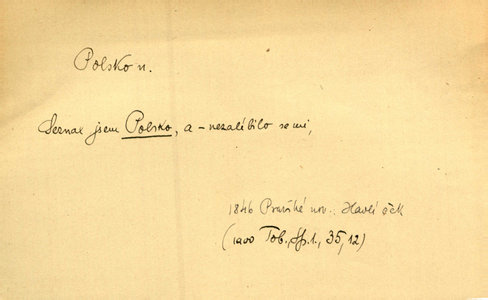 Polsko n.
Seznal jsem Polsko, a – nezalíbilo se mi,
1846 Pražské nov. Havlíček
(1900 Tob., Sp. 1, 35, 12)